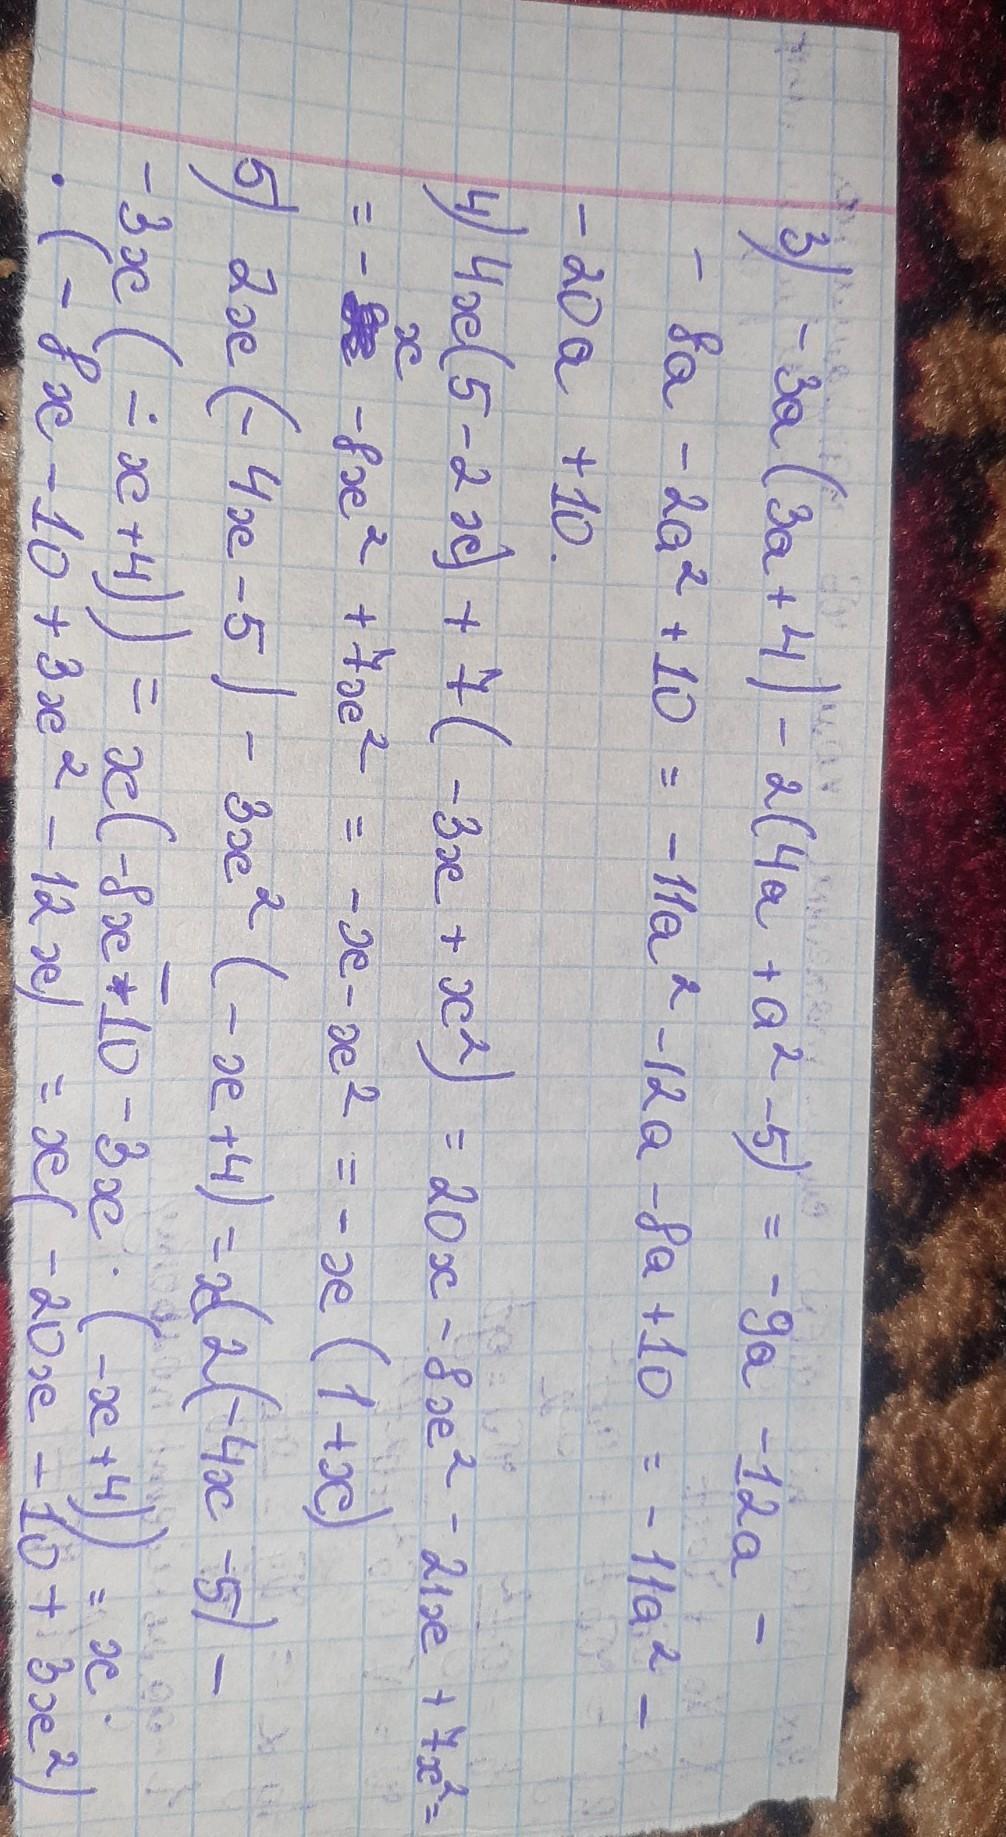 3) -3a(3a+4)-2(4a+a²-5) = -9a -12a -
- 8a - 2a² + 10 = -11a² -12a -8a +10 = -11a² -
-20a +10.
4) 4x(5-2x) + 7( -3x + x²) = 20x - 8x² - 21x + 7x² =
= - x -8x² + 7x² = -x - x² = - x (1 + x)
5) 2x (-4x -5) - 3x² ( - x +4) = x(2(-4x -5) -
-3x (-x +4)) = x(-8x - 10 -3x · (-x+4)) = x ·
· (-8x -10 + 3x² - 12x) = x( -20x - 10 + 3x²)